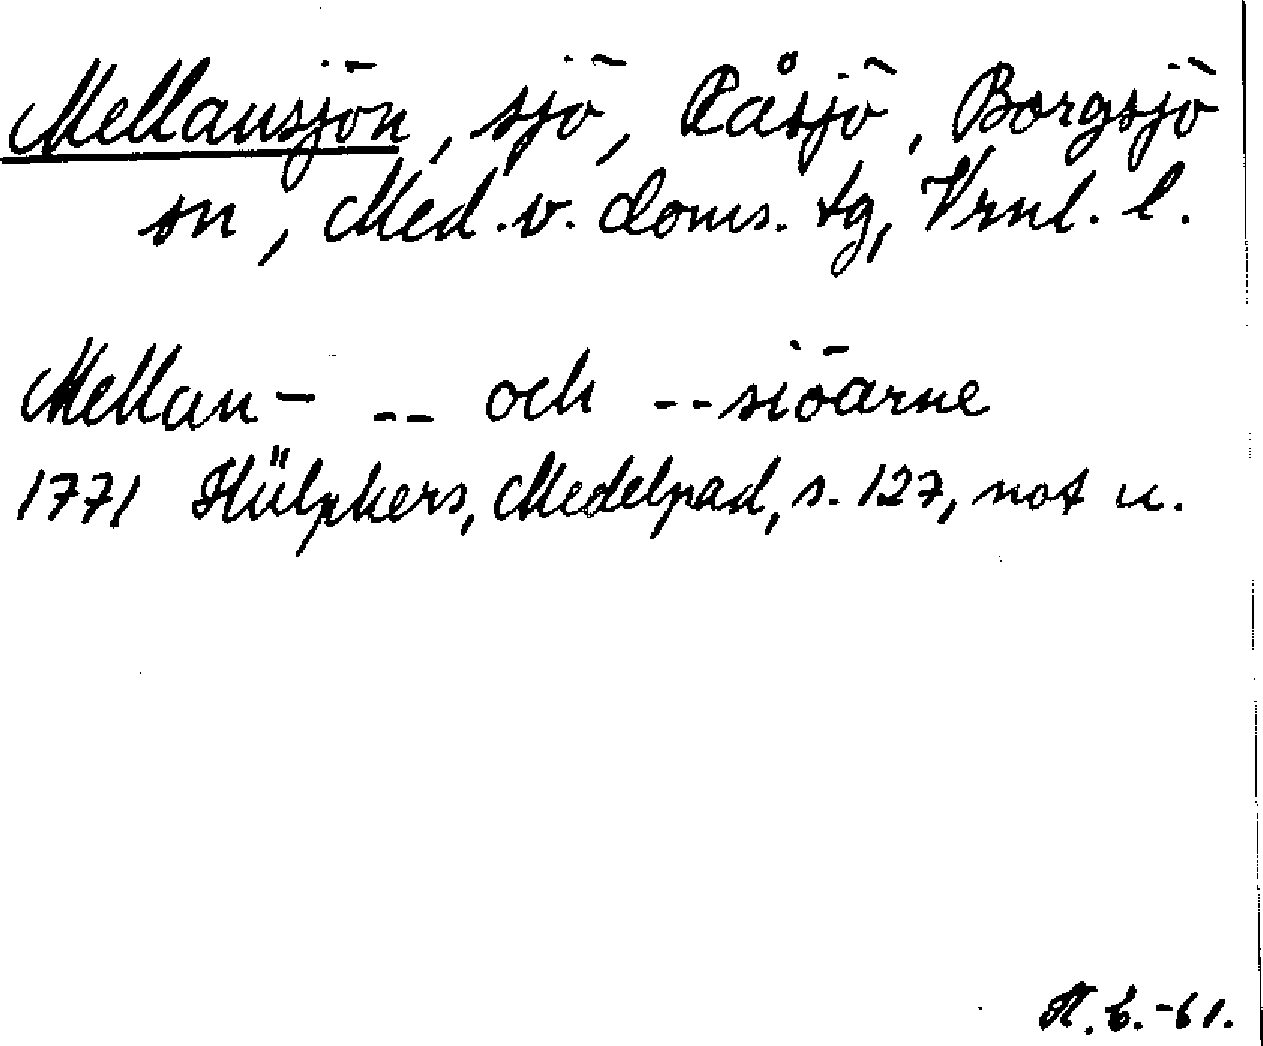 Mellansjön, sjö, Råsjö, Borgsjö
sn, Med. v. doms. tg, Vrnl. l.
Mellan- -- och --siöarne
1771 Hülphers, Medelpad, s. 127, not u.
H. b. -61.